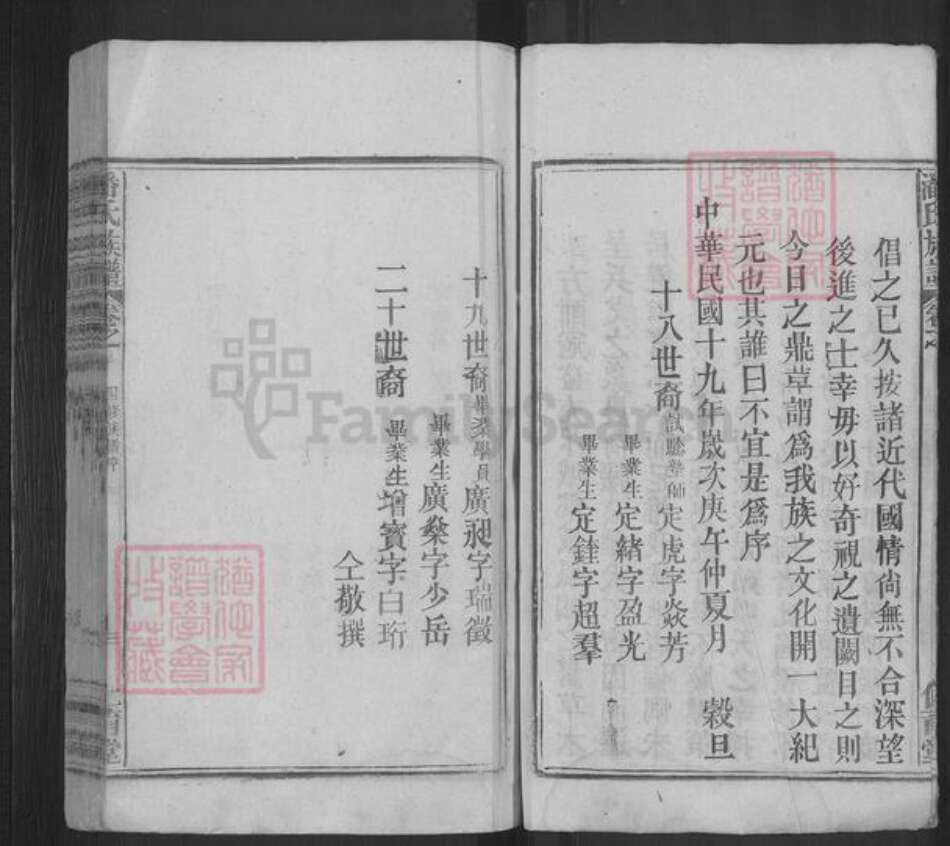 倡之已久按諸近代國情尚無不合深望
後進之士幸毋以好奇視之遺闕目之則
今日之鼎革謂爲我族之文化開一大紀
元也其誰曰不宜是爲序
中華民國十九年歲次庚午仲夏月 穀旦
十八世裔試驗塾師定虎字焱芳
畢業生定緒字盈光
畢業生定銓字超羣
十九世裔畢業學員廣昶字瑞徵
畢業生廣燊字少岳
二十世裔畢業生增寶字白珩
仝敬撰
潘氏族譜
卷之
FamilySearch